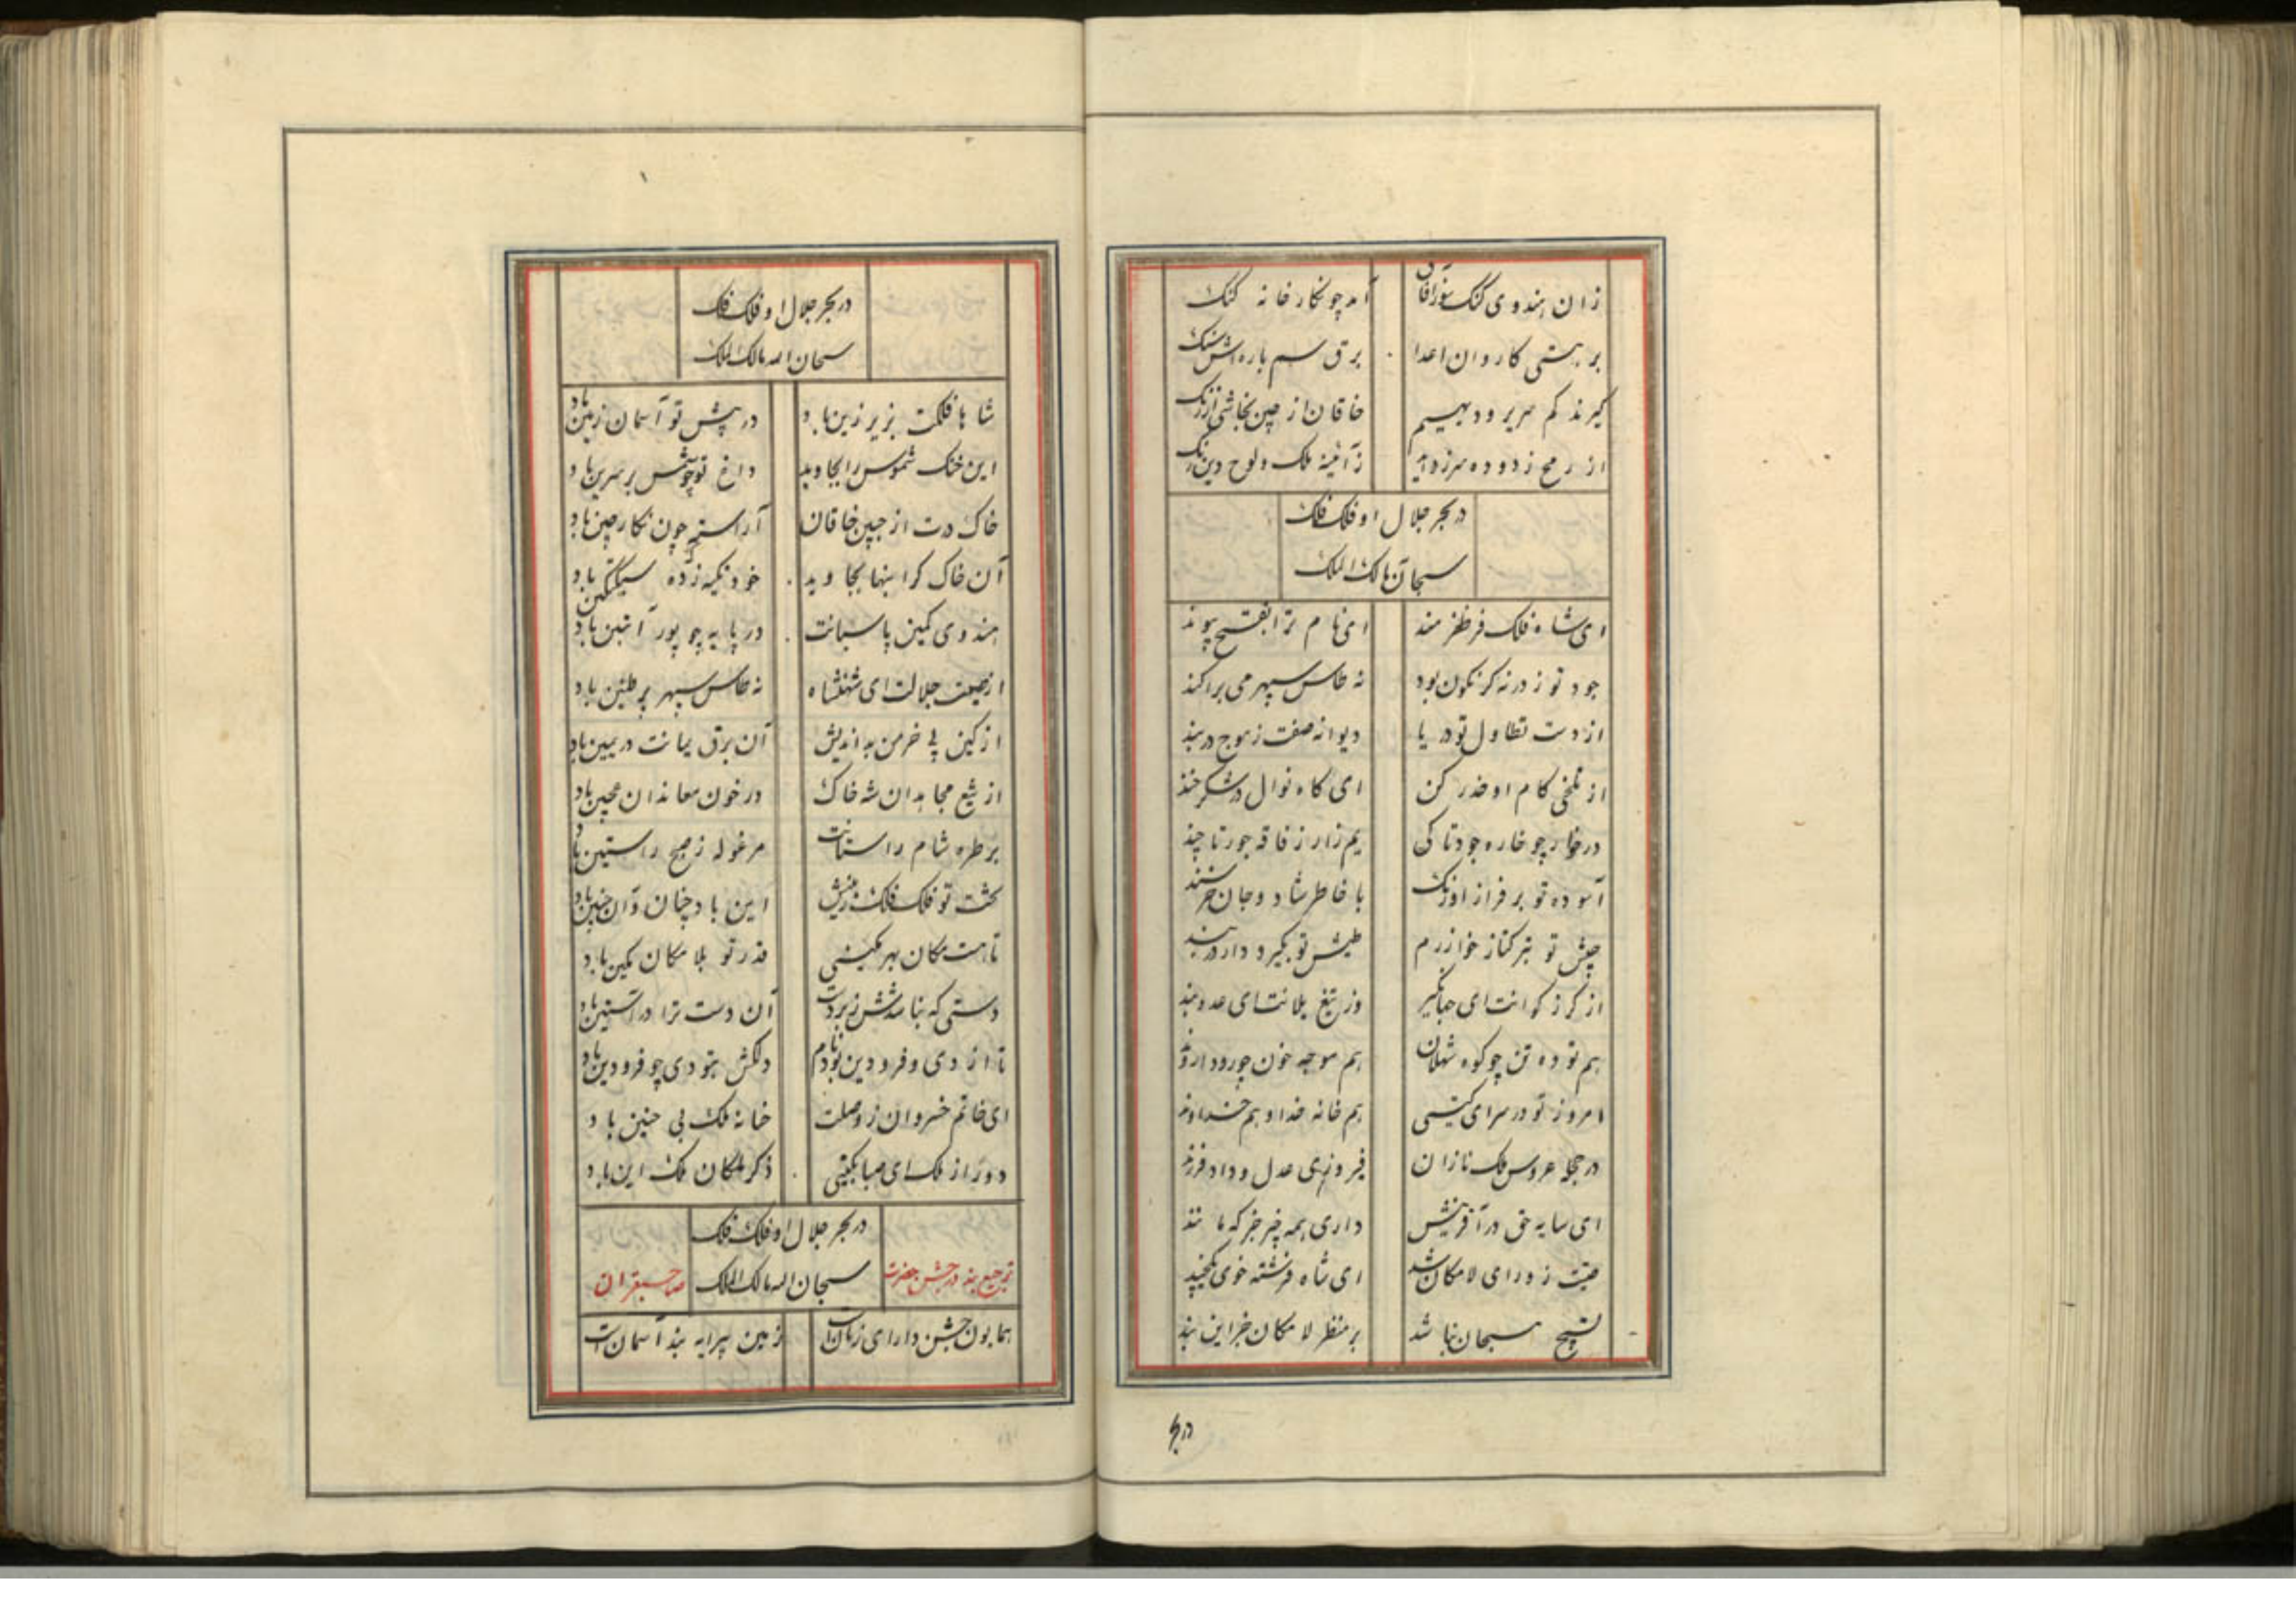 زان هندوی کنک سوز آفاق آمد چو نگارخانه کنک
بر هستی کاروان اعدا برق سم باره اش سنک
گیرند کم سریر و دیهیم خاقان از چین نجاشی از زنک
از رمح زدوده سرزداید ز آئینهٔ ملک و لوح دین رنک
در بحر جلال او فلک فلک
سبحان الله مالک الملک
ای شاه فلک فر ظفرمند ای نام ترا بفتح پیوند
جود تو ز در نه کر نکون بود نه طاس سپهر می براکند
از دست تطاول تو دریا دیوانه صفت ز موج در بند
از تلخی کام او حذر کن ای کاه نوال در شکرخند
در خواب چو خاره جود تا کی یم زار ز فاقه جور تا چند
آسوده تو بر فراز اورنک با خاطر شاد و جان خرسند
جیش تو بترکتاز خوارزم طیش تو بگیرودار دربند
از گرز گرانت ای جهانگیر وز تیغ یلانت ای عدوبند
هم توده تن چو کوه شهلان هم موجه خون چو رود اروند
امروز تو در سرای گیتی هم خانه خدا و هم خداوند
در حجله عروس ملک نازان فیروزی عدل و داد فرزند
ای سایه حق در آفرینش داری همه چیز جز که مانند
صیتت ز ورای لامکان شد ای شاه فرشته خوی
تسبیح مسبحان نباشد بر منظر لامکان جز این بند
در بحر
در بحر جلال او فلک فلک
سبحان الله مالک الملک
شاها فلکت بزیر زین باد در پیش تو آسمان زمین باد
این خنک شموس را بجاوید داغ تو چو شمس بر سرین باد
خاک درت از جبین خاقان آراسته چون نگار چین باد
آن خاک گرانبها بجاوید خود تکیه زده سبکتکین باد
هندوی کمین پاسبانت در پایه چو پور آتبین باد
از صیت جلالت ای شهنشاه نه طاس سپهر پر طنین باد
از کین پی خرمن بداندیش آن برق یمانت در یمین باد
از تیغ مجاهدان شه خاک در خون معاندان عجین باد
بر طره شام راستانت مرغوله ز صبح راستین باد
تخت تو فلک فلک زمینش این باد چنان و آن چنین باد
تا هست مکان بهر مکینی قدر تو بلامکان مکین باد
دستی که نباشدش زبردست آن دست ترا در آستین باد
تا از دی و فرودین بود نام دلکش بتو دی چو فرودین باد
ای خاتم خسروان ز وصلت خانه فلک بی حنین باد
دور از ملک ای صبا بگیتی ذکر ملکان ملک این باد
در بحر جلال او فلک فلک
سبحان الله مالک الملک
ترجیع بند در جشن حضرت صاحبقران
همایون جشن دارای زمان است زمین پیرایه بند آسمان است